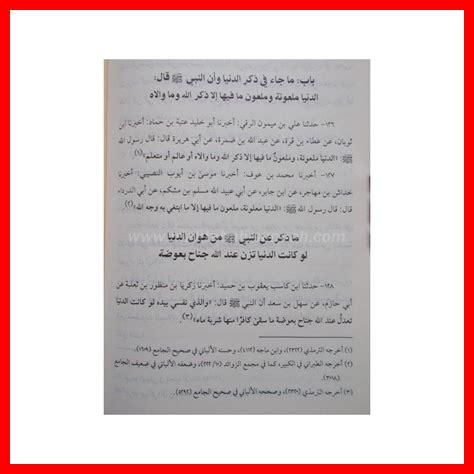 باب: ما جاء في ذكر الدنيا وأن النبي ﷺ قال:
الدنيا ملعونة وملعون ما فيها إلا ذكر الله وما والاه
١٢٦- حدثنا علي بن ميمون الرقي: أخبرنا أبو خليد عتبة بن حماد: أخبرنا ابن
ثوبان، عن عطاء بن قرة، عن عبد الله بن ضمرة، عن أبي هريرة قال: قال رسول الله
ﷺ: «الدنيا ملعونة، وملعونٌ ما فيها إلا ذكر الله وما والاه أو عالم أو متعلم» (١)
١٢٧- أخبرنا محمد بن عوف: أخبرنا موسى بن أيوب النصيبي: أخبرنا
خداش بن مهاجر، عن ابن جابر، عن أبي عبيد الله مسلم بن مشكم، عن أبي الدرداء
قال: قال رسول الله ﷺ: «الدنيا ملعونة، ملعون ما فيها إلا ما ابتغي به وجه الله» (٢)
ما ذكر عن النبي ﷺ من هوان الدنيا
لو كانت الدنيا تزن عند الله جناح بعوضة
١٢٨- حدثنا ابن كاسب يعقوب بن حميد: أخبرنا زكريا بن منظور بن ثعلبة عن
أبي حازم، عن سهل بن سعد أن النبي ﷺ قال: «والذي نفسي بيده لو كانت الدنيا
تعدلُ عند الله جناح بعوضة ما سقىٰ كافرًا منها شربة ماء» (٣)
(١) أخرجه الترمذي (٢٣٢٢)، وابن ماجه (٤١١٢)، وحسنه الألباني في صحيح الجامع (١٦٠٩)
(٢) أخرجه الطبراني في الكبير، كما في مجمع الزوائد (٢٢٢/١٠)، وضعفه الألباني في ضعيف الجامع
(٣٠١٨)
(٣) أخرجه الترمذي (٢٣٢٠)، وصححه الألباني في صحيح الجامع (٥٢٩٢)